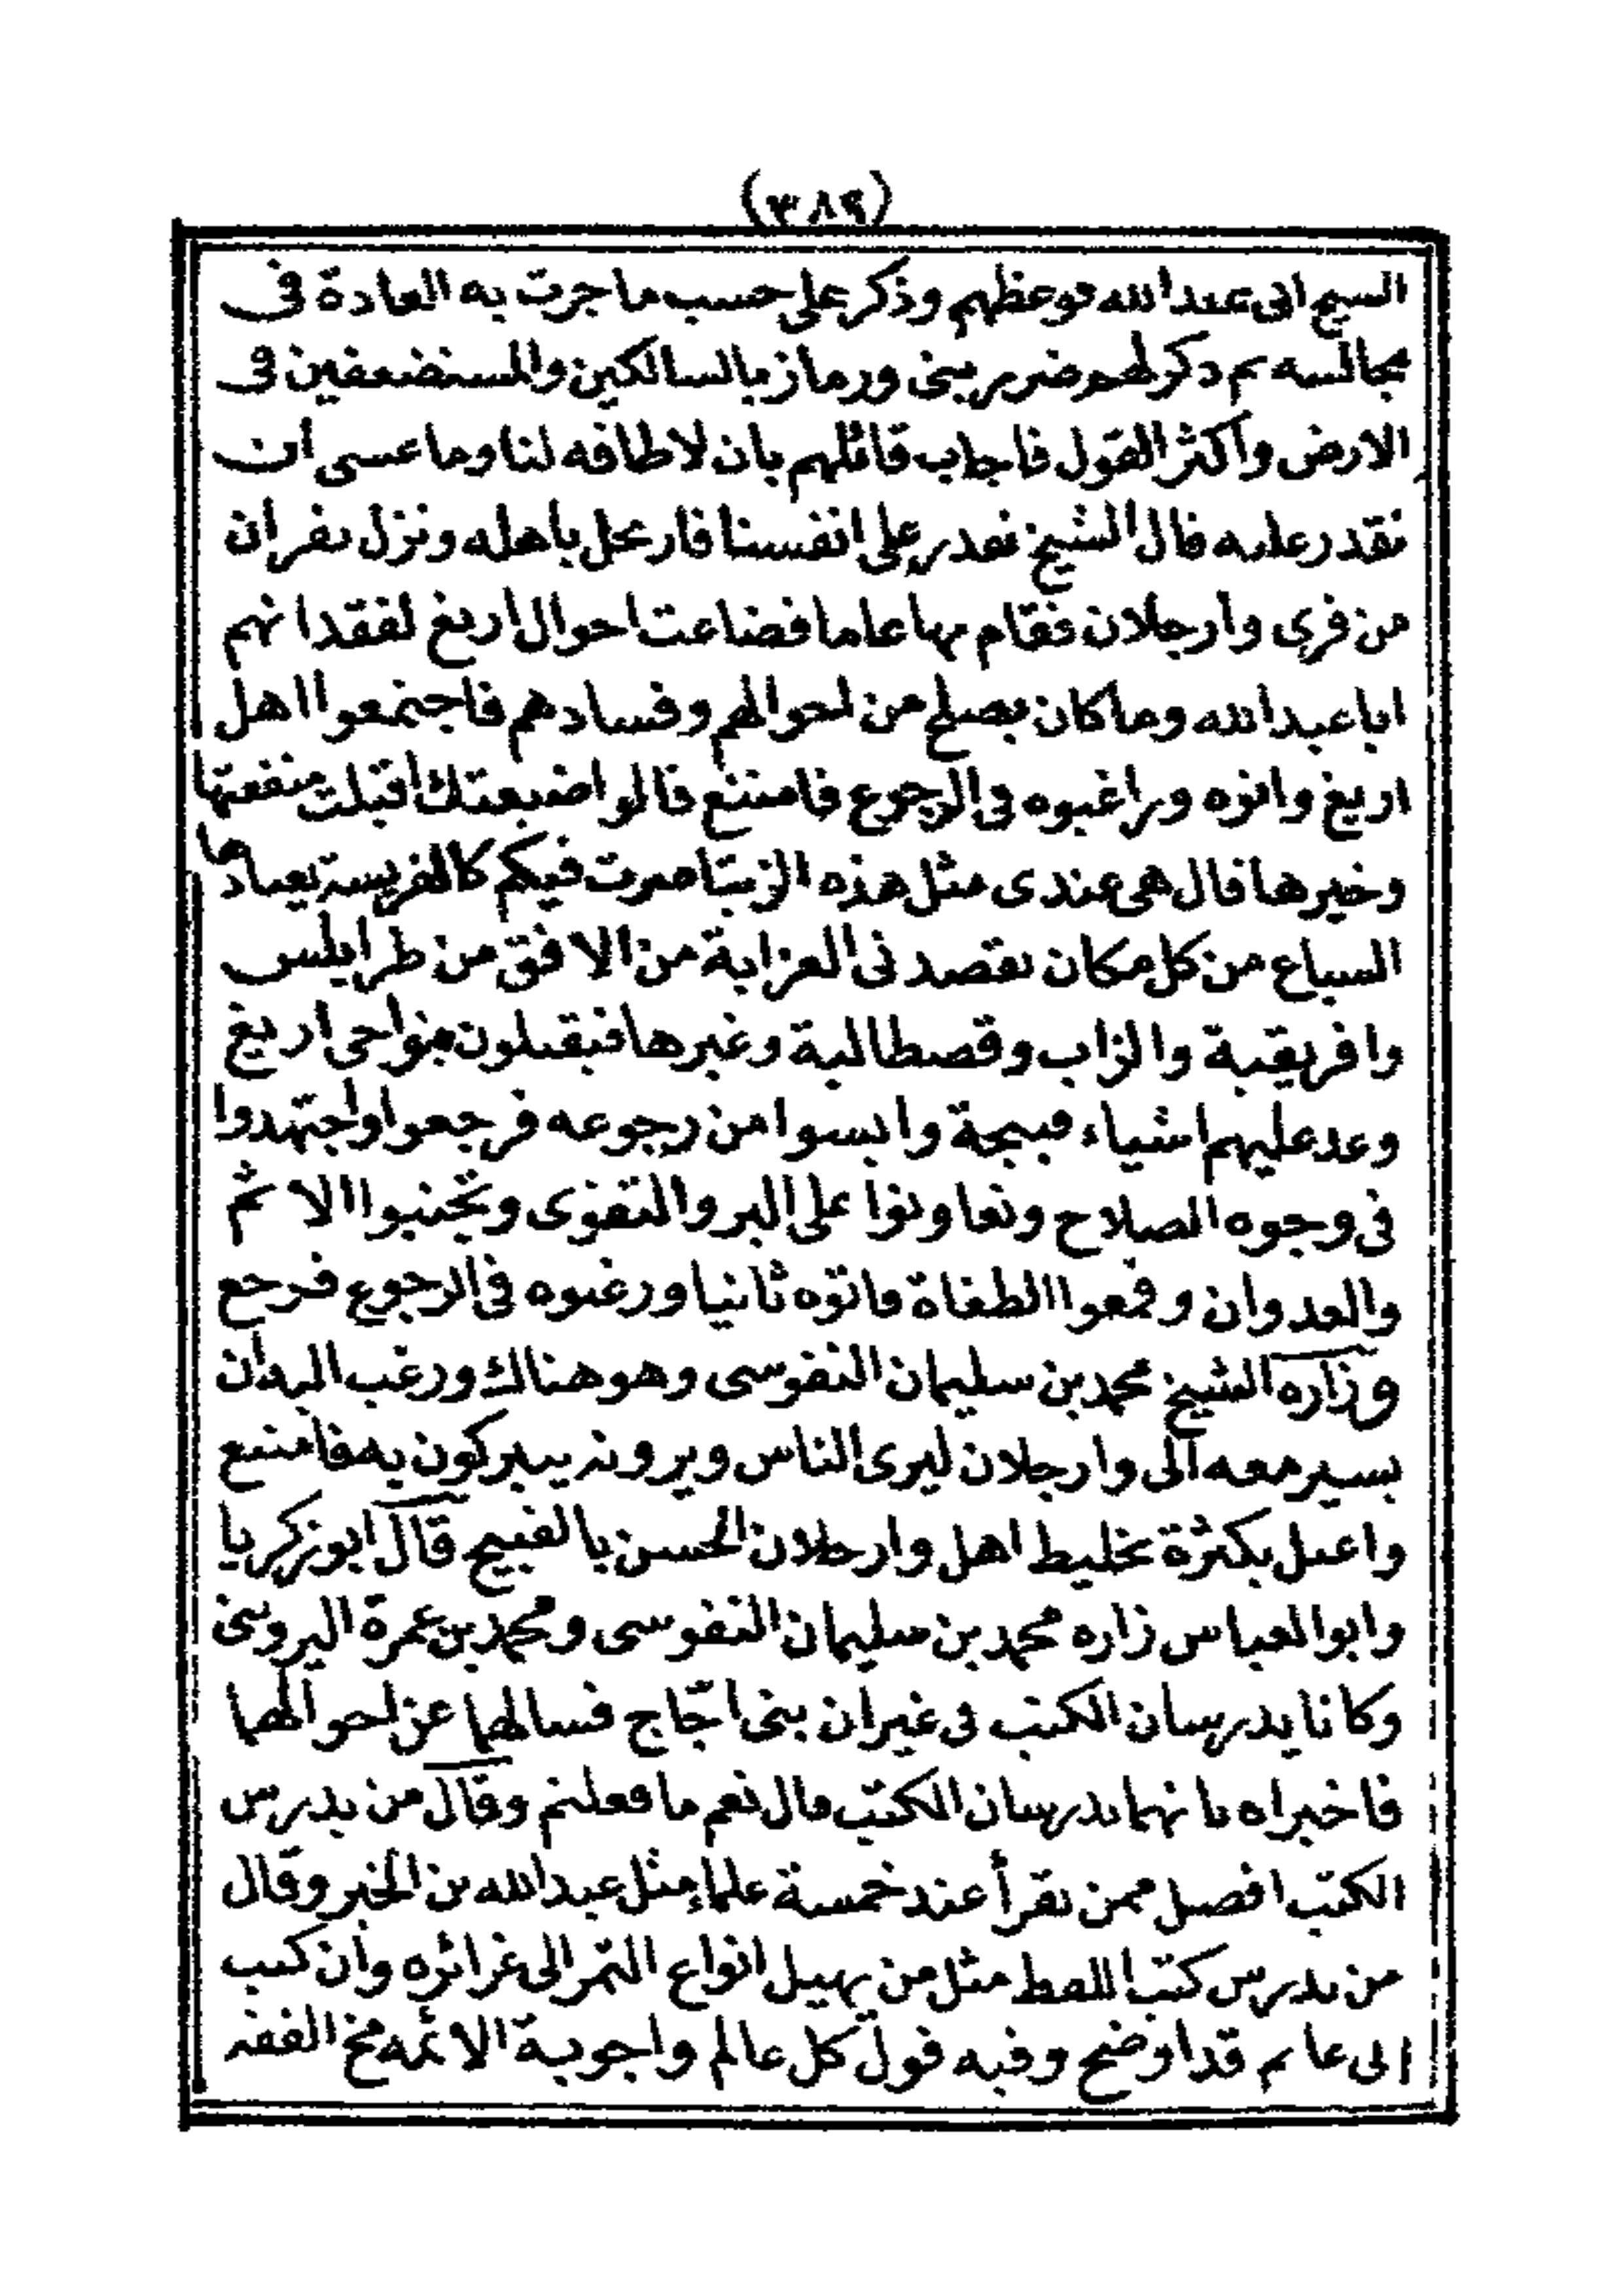 (٣٨٩)
الشيخ ابى عبد الله فوعظهم وذكر على حسب ما جرت به العادة فى
مجالسه ثم ذكر لهم ضرر بنى ورماز بالسالكين والمستضعفين فى
الارض واكثر القول فاجاب قائلهم بان لا طاقة لنا وما عسى ان
نقدر عليه قال الشيخ نقدر على انفسنا فارتحل باهله ونزل
من قرى وارجلان فقام بها عاما فضاعت احوال اريغ لفقدانهم
ابا عبد الله وما كان يصلح من احوالهم وفسادهم فاجتمعوا اهل
اريغ واتوه وراغبوه فى الرجوع فامتنع قالوا ضيعتك اقبلت منفعتها
وخيرها قال هى عندى مثل هذه صرت فيكم كالفريسة
السباع من كل مكان تقصدنى العزابة من الافق من طرابلس
وافريقية والزاب وقصطالية وغيرها فيقبلون بنواحى اريغ
وعد عليهم اشياء قبيحة وايسوا من رجوعه فرجعوا واجتهدوا
فى وجوه الصلاح وتعاونوا على البر والتقوى وتجنبوا الاثم
والعدوان وقمعوا الطغاة فاتوه ثانيا ورغبوه فى الرجوع فرجع
وزاره الشيخ محمد بن سليمان النفوسى وهو هناك ورغب اليه ان
يسير معه الى وارجلان ليرى الناس ويرونه يتبركون به فامتنع
واعتل بكثرة تخليط اهل وارجلان الحسن بالقبيح قال ابو زكريا
وابو العباس زاره محمد بن سليمان النفوسى ومحمد بن عمرة اليروتنى
وكانا يدرسان الكتب فى غيران بنى اجاج فسالهما عن احوالهما
فاخبراه بانهما يدرسان الكتب قال نعم ما فعلتم وقال من يدرس
الكتب افضل ممن يقرأ عند خمسة علماء مثل عبد الله بن الخير وقال
من يدرس كتب اللقط مثل من يهيل انواع التمر الى غرائره وان كتب
ابى غانم قد اوضح وفيه قول كل عالم واجوبة الائمه مخ الفقه